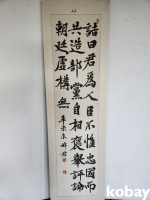 詔曰君為人臣不惟忠國而
共造部黨自相褒舉評論
朝廷虛構無
kobay